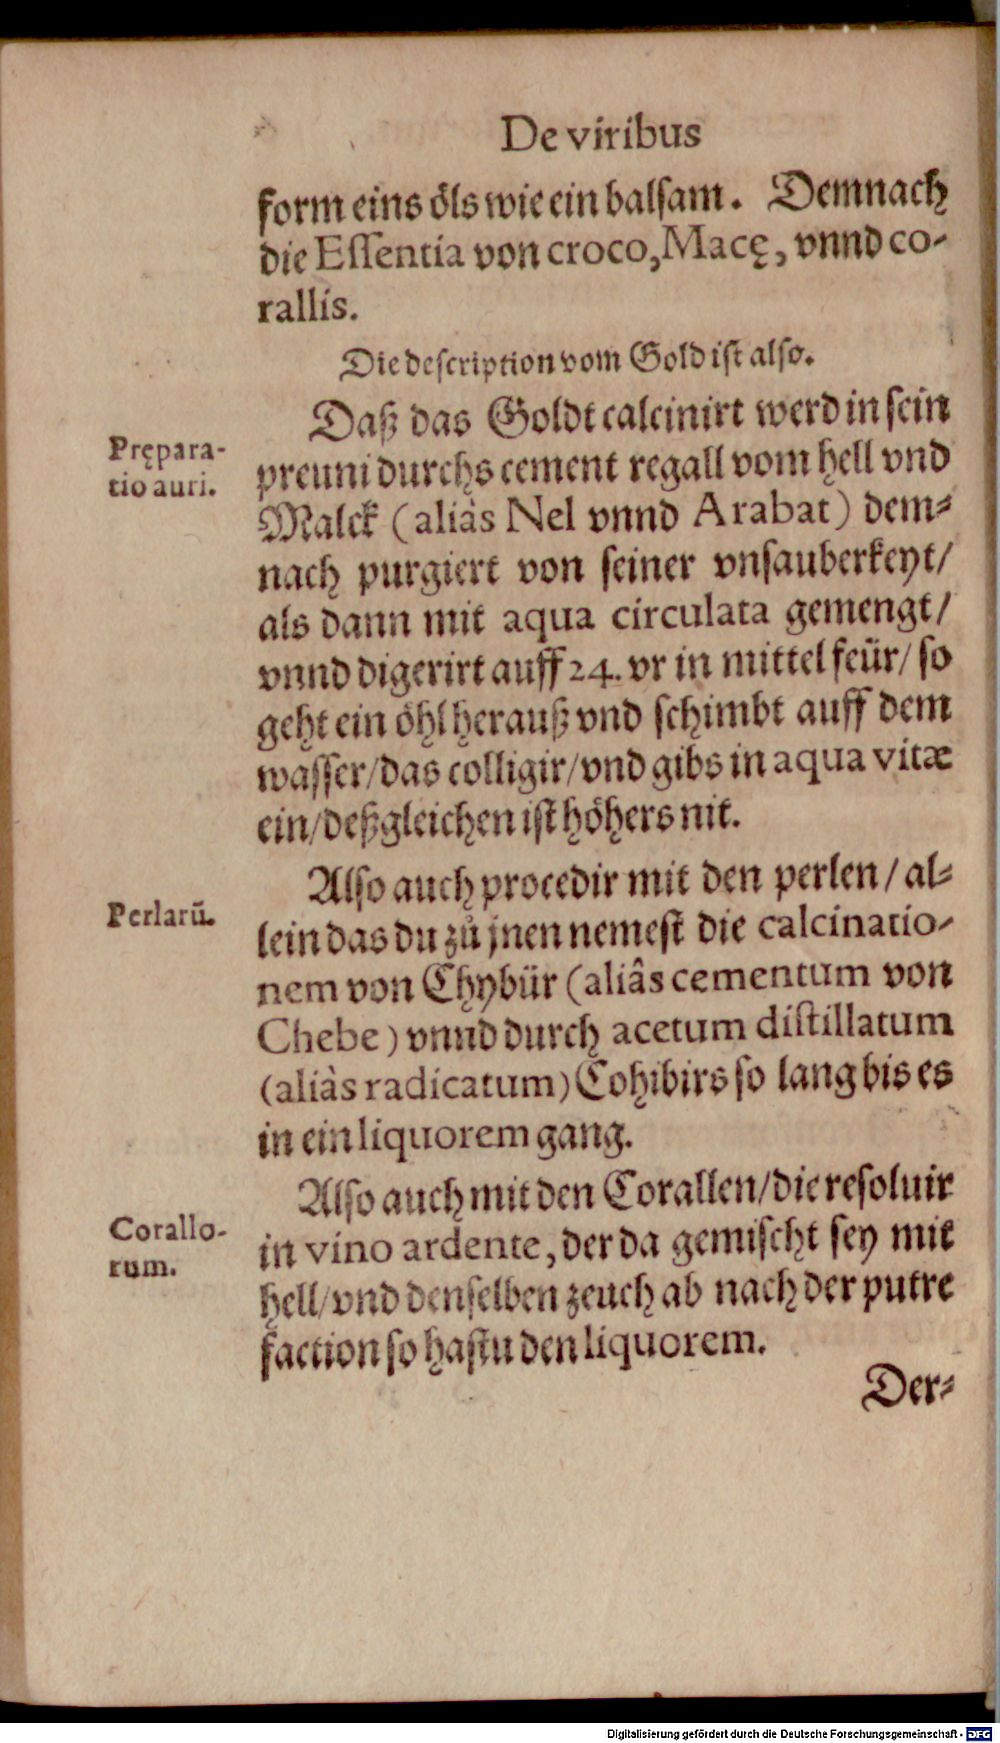 De viribus
form eins öls wie ein balsam. Demnach
die Essentia von croco, Macę, vnnd co-
rallis.
Die description vom Gold ist also.
Daß das Goldt calcinirt werd in sein
Prępara-
tio auri.
preuni durchs cement regall vom hell vnd
Malck (aliàs Nel vnnd Arabat) dem-
nach purgiert von seiner vnsauberkeyt/
als dann mit aqua circulata gemengt/
vnnd digerirt auff 24. vr in mittel feür/ so
geht ein öhl herauß vnd schimbt auff dem
wasser/ das colligir/ vnd gibs in aqua vitæ
ein/ deßgleichen ist höhers nit.
Also auch procedir mit den perlen/ al-
Perlarū.
lein das du zů jnen nemest die calcinatio-
nem von Chybür (aliâs cementum von
Chebe) vnnd durch acetum distillatum
(aliàs radicatum) Cohibirs so lang bis es
in ein liquorem gang.
Also auch mit den Corallen/ die resoluir
Corallo-
rum.
in vino ardente, der da gemischt sey mit
hell/ vnd denselben zeuch ab nach der putre
faction so hastu den liquorem.
Der-
Digitalisierung gefördert durch die Deutsche Forschungsgemeinschaft - DFG